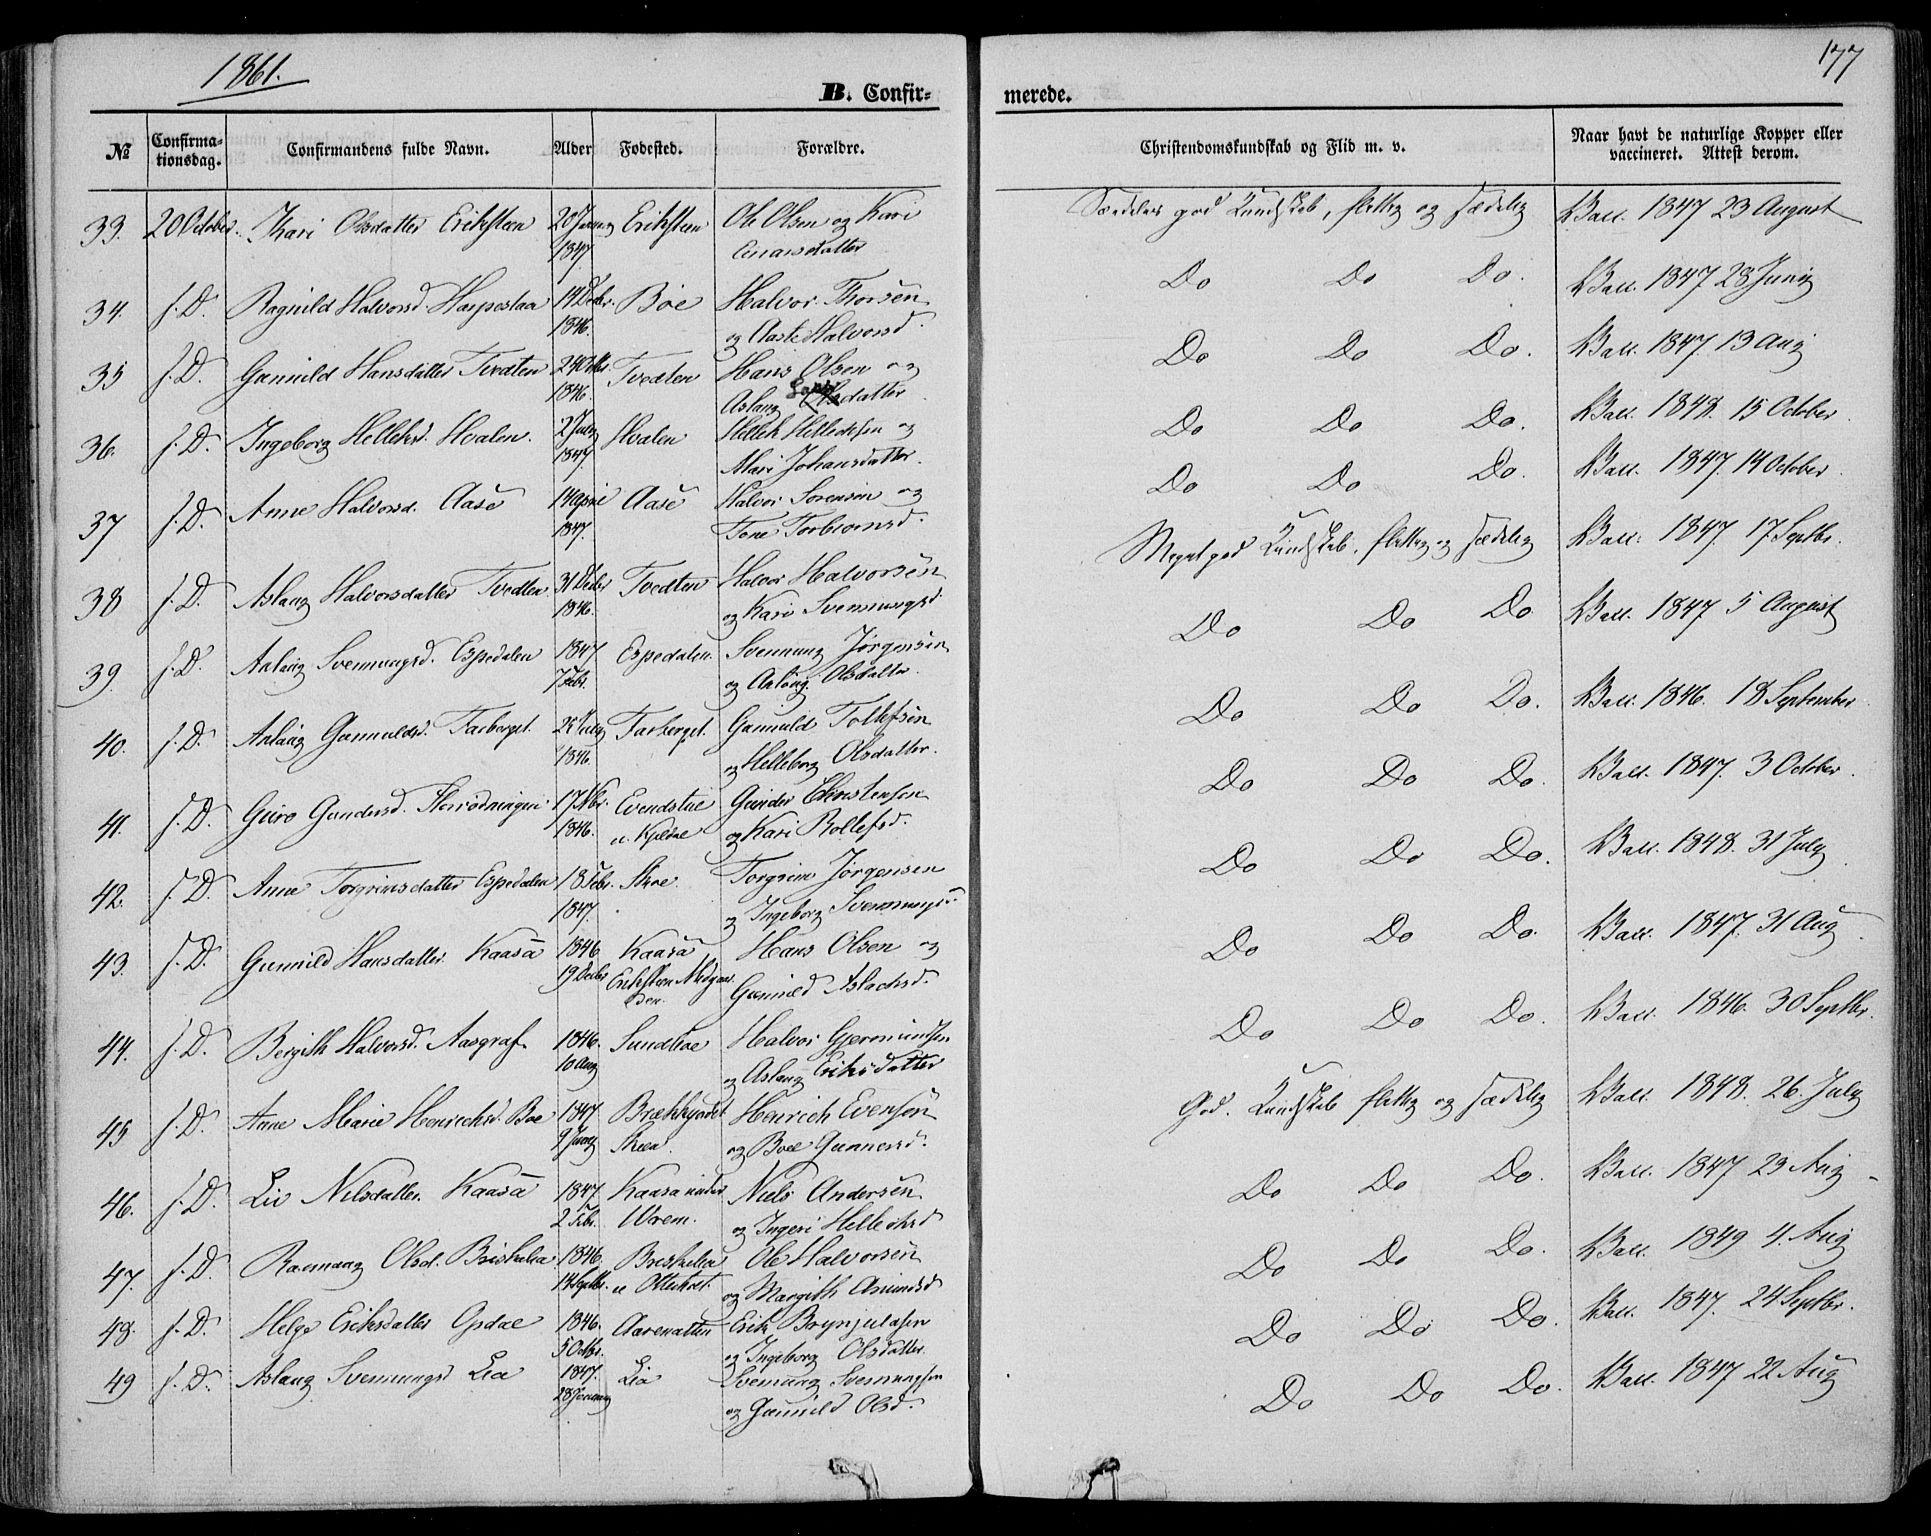 1861.
177
B. Confir-
merede.
№ Confirma-tionsdag. Confirmandens fulde Navn. Alder Fødested. Forældre. Christendomskundskab og Flid m. v. Naar havt de naturlige Kopper eller vaccineret. Attest derom.
33. 20 October. Kari Olsdatter Erikstein 20 1847 Erikstein Ole Olsen og Kari Særdeles god Kundskab, flittig og sædelig Vacc. 1847 23 August
34. f. D. Ragnild Halvorsd. Harpestaa 14 Decbr. 1846. Bøe Halvor Thorsen og Aaste Halvorsd. Do Do Do. Vacc. 1847 28 Juny
35 f. D. Gunnild Hansdatter Tvedten 1846. Tvedten Hans Olsen og Aslaug datter Do Do Do. Vacc. 1847. 13 Aug
36. f. D. Ingeborg Helleksd. Hvalen. 2 July 1847 Hvalen Hellek Helleksen og Mari Johansdatter. Do Do Do. Vacc. 1848. 15 October.
37 f. D. Anne Halvorsd. Aase 14 April 1847. Aase Halvor Sørensen og Tone Torbiørnsd. Do Do Do. Vacc. 1847. 14 October.
38 f. D. Aslaug Halvorsdatter Tvedten 31 Decbr 1846. Tvedten Halvor Halvorsen og Kari Svennungsd Meget god Kundskab, flittig og sædelig Vacc. 1847 17 Septbr.
39. f. D. Aslaug Svennungsd. Espedalen 1847 7 Febr. Espedalen. Svennung Jørgensen og Aslaug Olsdatter. Do Do Do Vacc. 1847 5 August
40. f. D. Aslaug Gunnulds. Farberget. 25 July 1846. Farberget. Gunnuld Tollefsen og Helleborg Olsdatter. Do Do Do. Vacc. 1846. 18 September
41. f. D. Guro Gundersd. 17 1846. Evendstue u. Gunder Christensen og Kari Rollefsd. Do Do Do. Vacc. 1847. 3 October.
42. f. D. Anne Torgrimsdatter Espedalen 18 Febr. 1847. Skoe. Torgrim Jørgensen og Ingeborg Svennungsd. Do Do Do. Vacc. 1848. 31 July
43. f. D. Gunnild Hansdatter Kaasa 1846 19 Decbr Kaasa Hans Olsen og Gunnild Aslachsd. Do Do Do. Vacc. 1847. 31 Aug
44. f. D. Bergith Halvorsd. Aasgraf. 1846. 10 Aug Sundbøe Halvor Gjermundsen og Aslaug Eriksdatter Do Do Do. Vacc. 1846. 30 Septbr.
45 f. D. Anne Marie Henrichsd. Bøe 1847 9 Skien. Henrich Evensen og Boel Gunnersd. God. Kundskab flittig og sædelig Vacc. 1848. 26. July
46. f. D. Liv Nilsdatter. Kaasa 1847. 2 Febr. Kaasa under Niels Andersen og Ingeri Helleksd Do Do Do. Vacc. 1847 23 Aug
47. f. D. Olsd. 1846. 14 Septbr. Ole Halvorsen og Margith Amundsd Do Do Do. Vacc. 1849 4. Aug
48. f. D. Helge Eriksdatter Opdal 1846. 5 Octbr. Aarenatten Erik Brynjulfsen og Ingeborg Olsdatter. Do Do Do. Vacc. 1847. 24 Septbr.
49 f. D. Aslaug Svennungsd Lia 1847. 28 Lia Svennung Svennungsen og Gunnild Olsd. Do Do Do. Vacc. 1847 22 Aug